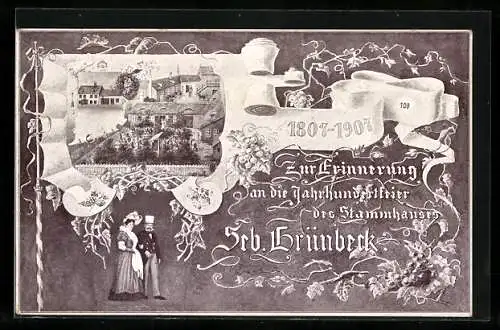 1807-1907
Zur Erinnerung
an die Jahrhundertfeier
des Stammhauses
Seb. Grünbeck